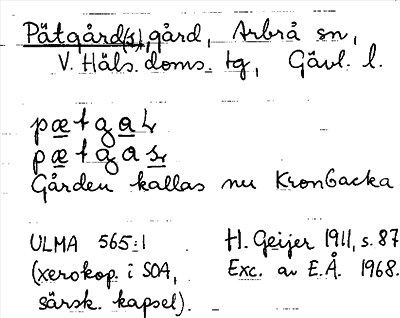 Pätgård(s), gård, Arbrå sn,
V. Häls. doms. tg, Gävl. l.
pætgaɫ
pætgas
Gården kallas nu Kronbacka
ULMA 565:1
(xerokop. i SOA,
särsk. kapsel).
H. Geijer 1911, s. 87
Exc. av E.Å. 1968.